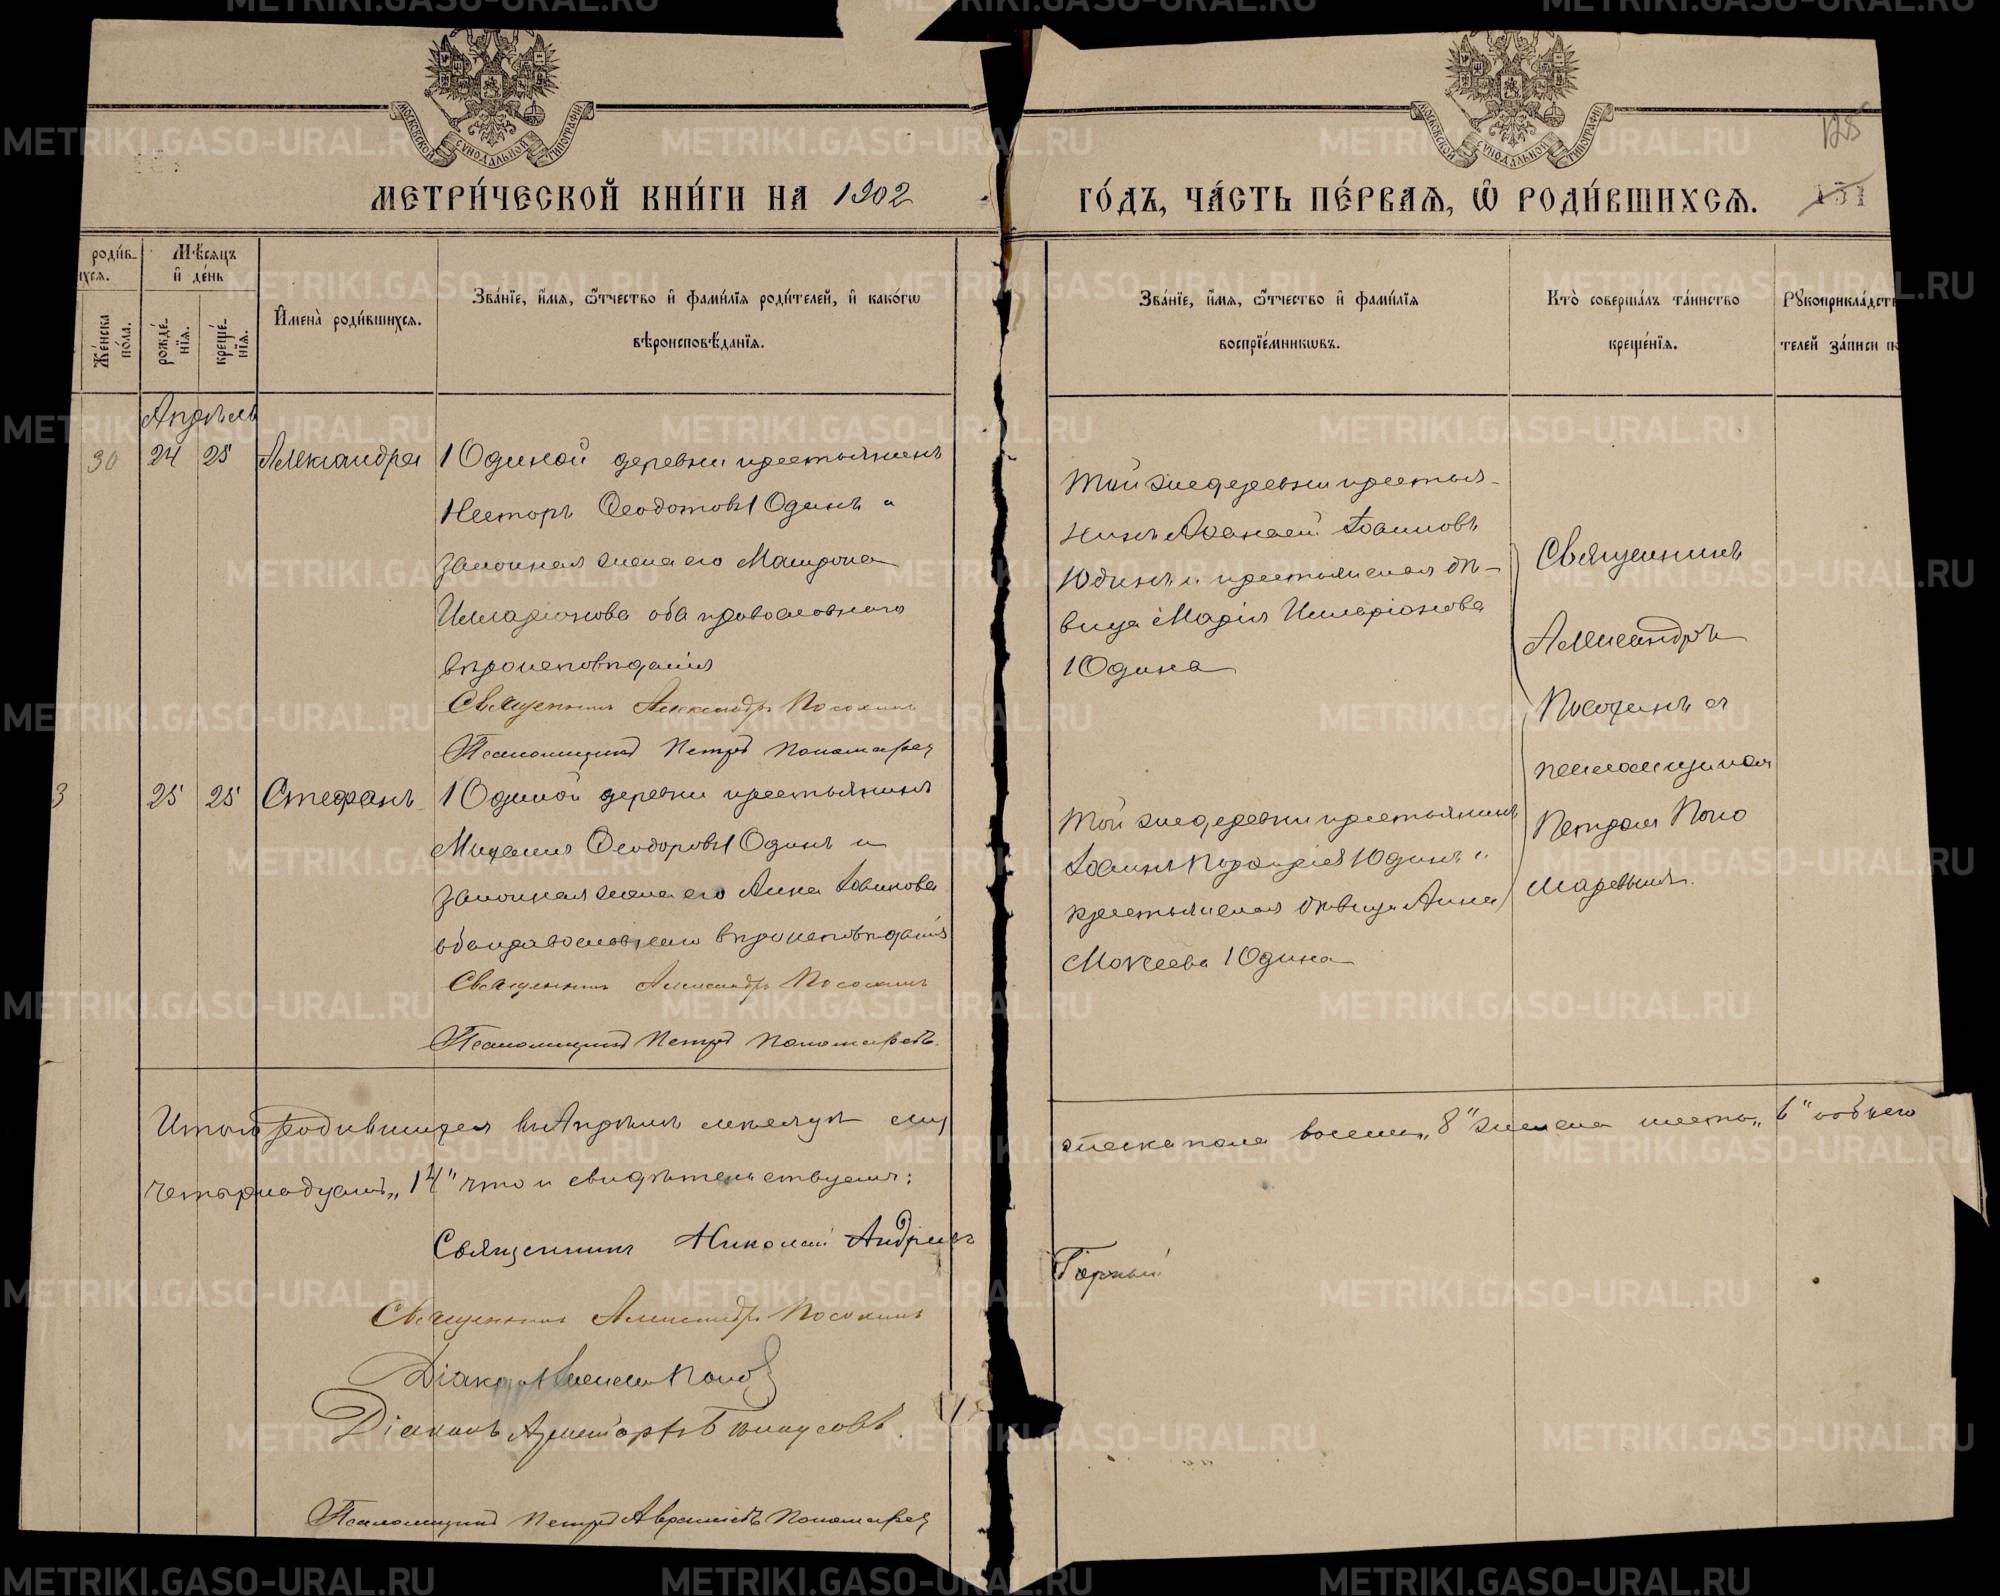 МОСКОВСКОЙ СѴНОДАЛЬНОЙ ТИПОГРАФІИ
МОСКОВСКОЙ СѴНОДАЛЬНОЙ ТИПОГРАФІИ
125
МЕТРИ́ЧЕСКОЙ КНИ́ГИ НА 1902
ГО́ДЪ, ЧА́СТЬ ПЕ́РВАѦ, Ѡ҆ РОДИ́ВШИХСѦ. 131
роди́в-
ихсѧ.
Мѣ́сѧцъ
и҆ де́нь
Же́нска по́ла.
рожде́-нїѧ.
креще́-нїѧ.
И҆мена̀ роди́вшихсѧ.
Зва́нїе, и҆́мѧ, ѻ҆́тчество и҆ фами́лїѧ роди́телей, и҆ како́гѡ
вѣроисповѣ́данїѧ.
Зва́нїе, и҆́мѧ, ѻ҆́тчество и҆ фами́лїѧ
воспрїе́мникѡвъ.
Кто̀ соверша́лъ та́инство
креще́нїѧ.
Рꙋкоприкла́дст
телей за́писи по
Апрѣль
30 24 25 Александра
Юдиной деревни крестьянинъ
Несторъ Ѳеодотовъ Юдинъ и
законная жена его Матрона
Илларіонова оба православнаго
вѣроисповѣданія
Священникъ Александръ Посохинъ
Псаломщикъ Петръ Пономаревъ
Той же деревни крестья-
нинъ Аѳанасій Іоанновъ
Юдинъ и крестьянская дѣ-
вица Марія Илларіонова
Юдина
Священникъ
Александръ
Посохинъ съ
псаломщикомъ
Петромъ Поно
маревымъ.
3 25 25 Стефанъ
Юдиной деревни крестьянинъ
Михаилъ Ѳеодоровъ Юдинъ и
законная жена его Анна Іоаннова
оба православнаго вѣроисповѣданія
Священникъ Александръ Посохинъ
Псаломщикъ Петръ Пономаревъ.
Той же деревни крестьянинъ
Іоаннъ Порфиріевъ Юдинъ и
крестьянская дѣвица Анна
Мокеева Юдина
Итого родившихся въ Апрѣлѣ мѣсяцѣ муж
жеска пола восемь „8" женска шесть „6" обоего
четырнадцать „14" что и свидѣтельствуемъ:
Священникъ Николай Андреевъ
Горный
Священникъ Александръ Посохинъ
Діаконъ Попов
Діаконъ Бѣлоусовъ.
Псаломщикъ Петръ Пономаревъ
METRIKI.GASO-URAL.RU